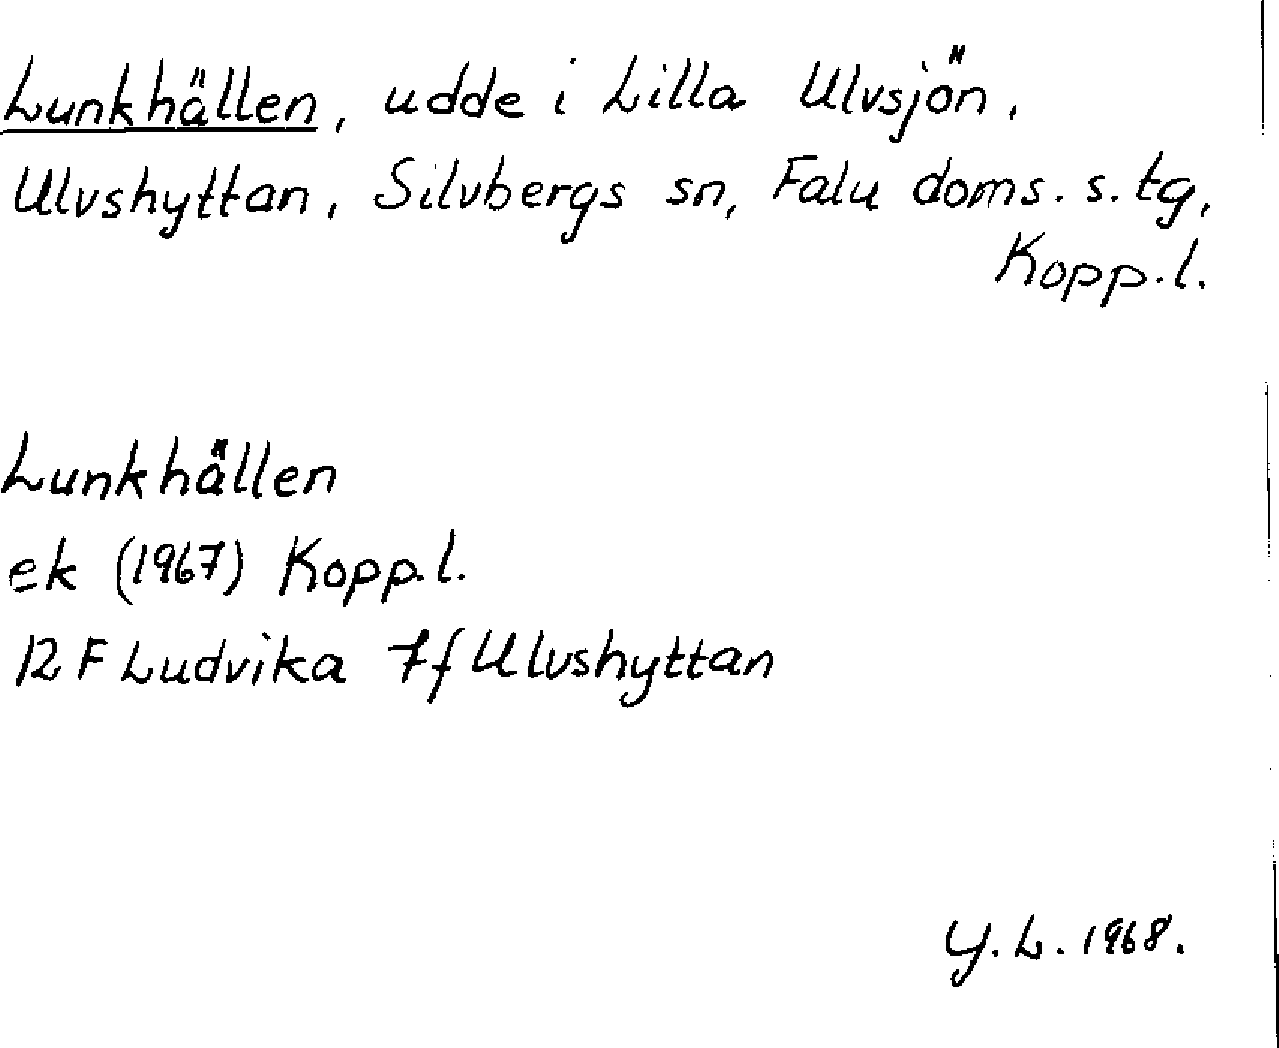 Lunkhällen, udde i Lilla Ulvsjön,
Ulvshyttan, Silvbergs sn, Falu doms. s. tg,
Kopp. l.
Lunkhällen
ek (1967) Kopp. l.
12 F Ludvika 7f Ulvshyttan
Y. L. 1968.